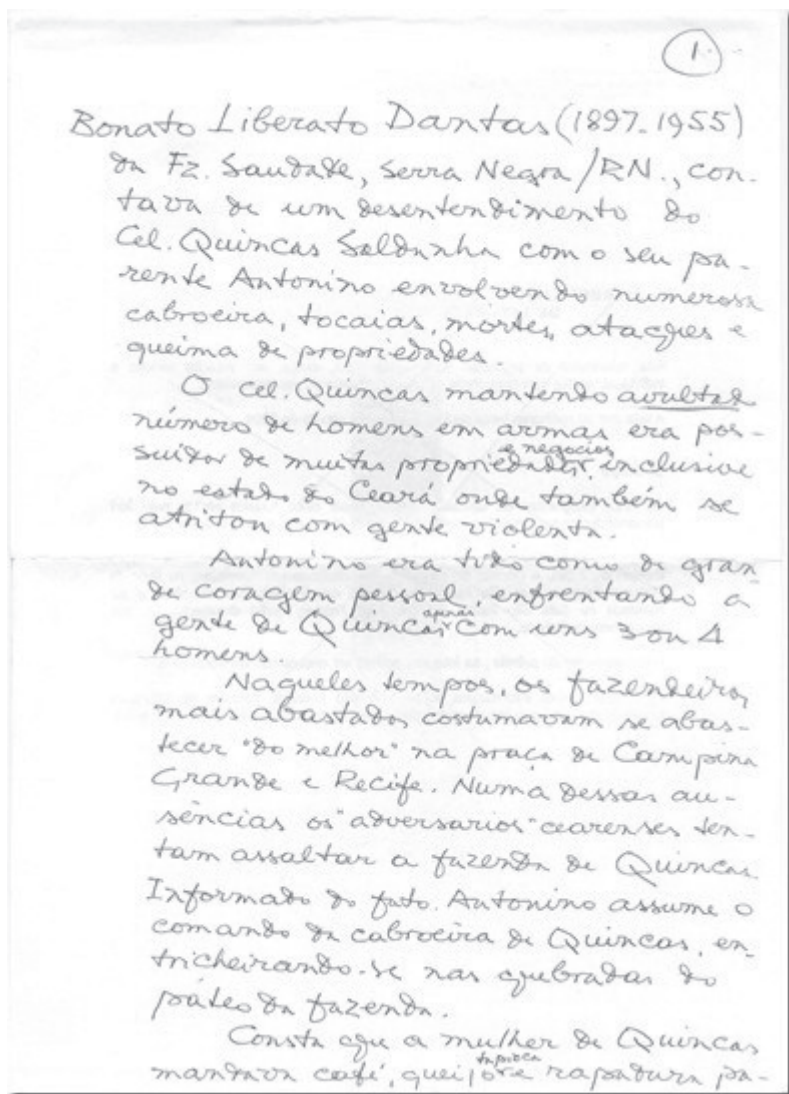 1.
Bonato Liberato Dantas (1897-1955)
da Fz. Saudade, Serra Negra/RN., con-
tava de um desentendimento do
Cel. Quincas Saldanha com o seu pa-
rente Antonino envolvendo numerosa
cabroeira, tocaias, mortes, ataques e
queima de propriedades.
O cel. Quincas mantendo avultado
número de homens em armas era pos-
e negocios
suidor de muitas propriedades, inclusive
no estado do Ceará onde também se
atritou com gente violenta.
Antonino era tido como de gran
de coragem pessoal, enfrentando a
apenas
gente de Quincas com uns 3 ou 4
homens.
Naqueles tempos, os fazendeiros
mais abastados costumavam se abas-
tecer "do melhor" na praça de Campina
Grande e Recife. Numa dessas au-
sências os "adversarios" cearenses ten-
tam assaltar a fazenda de Quincas.
Informado do fato. Antonino assume o
comando da cabroeira de Quincas, en-
tricheirando-se nas quebradas do
páteo da fazenda.
Consta que a mulher de Quincas
tapioca
mandava café, queijo e rapadura pa-